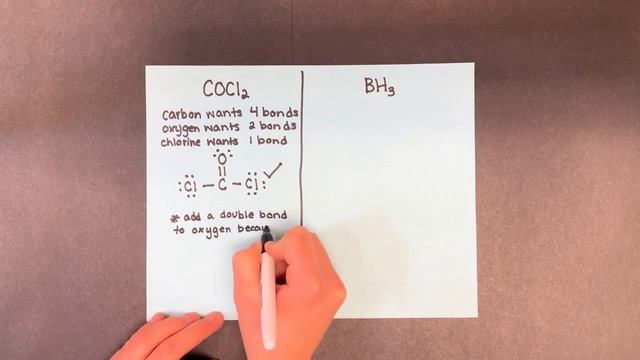 COCl₂
carbon wants 4 bonds
oxygen wants 2 bonds
chlorine wants 1 bond
O
Cl — C — Cl ✓
* add a double bond
to oxygen becau
BH₃